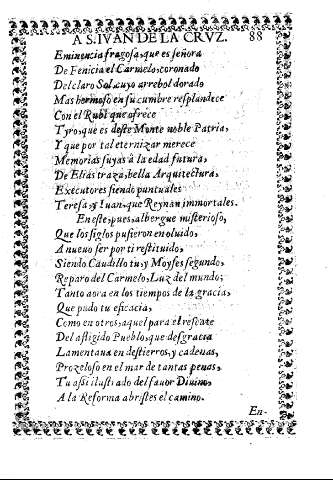 A S. IVAN DE LA CRVZ. 88
Eminencia fragosa, que es señora
De Fenicia el Carmelo, coronado
Del claro Sol, cuyo arrebol dorado
Mas hermoso en su cumbre resplandece
Con el Rubi que ofrece
Tyro, que es deste Monte noble Patria,
Y que por tal eternizar merece
Memorias suyas à la edad futura,
De Elias traza, bella Arquitectura,
Executores siendo puntuales
Teresa, y Iuan, que Reynan immortales.
En este, pues, albergue misterioso,
Que los siglos pusieron en oluido,
A nueuo ser por ti restituido,
Siendo Caudillo tu, y Moyses segundo,
Reparo del Carmelo, Luz del mundo;
Tanto aora en los tiempos de la gracia,
Que pudo tu eficacia,
Como en otros, aquel para el rescate
Del afligido Pueblo, que desgracia
Lamentaua en destierros, y cadenas,
Prozeloso en el mar de tantas penas,
Tu assi ilustrado del fauor Diuino,
A la Reforma abristes el camino.
En-